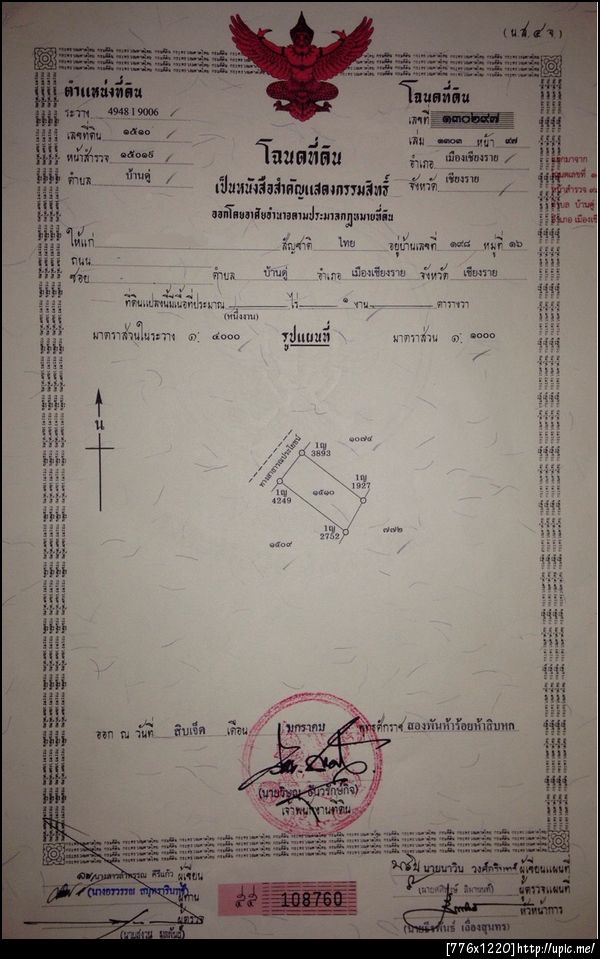 (น.ส. ๔ จ.)
ตำแหน่งที่ดิน
ระวาง 4948 I 9006
เลขที่ดิน ๑๕๑๐
หน้าสำรวจ
ตำบล บ้านดู่
โฉนดที่ดิน
เลขที่ ๑๓๐๒๙๗
เล่ม ๑๓๐๓ หน้า ๙๗
อำเภอ เมืองเชียงราย
จังหวัด เชียงราย
โฉนดที่ดิน
เป็นหนังสือสำคัญแสดงกรรมสิทธิ์
ออกโดยอาศัยอำนาจตามประมวลกฎหมายที่ดิน
ให้แก่ สัญชาติ ไทย อยู่บ้านเลขที่ ๑๙๘ หมู่ที่ ๑๖
ถนน
ซอย ตำบล บ้านดู่ อำเภอ เมืองเชียงราย จังหวัด เชียงราย
ที่ดินแปลงนี้มีเนื้อที่ประมาณ ไร่ ๑ งาน ตารางวา
(หนึ่งงาน)
มาตราส่วนในระวาง ๑: ๔๐๐๐ รูปแผนที่ มาตราส่วน ๑: ๑๐๐๐
น
ทางสาธารณประโยชน์
1ญ
3893
๑๐๗๔
1ญ
4249
๑๕๑๐
1ญ
1927
1ญ
2752
๗๗๒
๑๕๐๙
ออก ณ วันที่ สิบเจ็ด เดือน มกราคม พุทธศักราช สองพันห้าร้อยห้าสิบหก
เจ้าพนักงานที่ดิน
ผู้เขียน
ผู้ทาน
ผู้ตรวจ
108760
ผู้เขียนแผนที่
ผู้ตรวจแผนที่
หัวหน้าการ
[776x1220]http://upic.me/